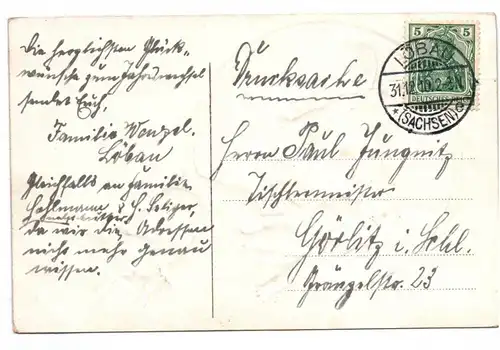 Die herzlichsten Glück-
wünsche zum Jahreswechsel
sendet Euch,
Familie Wenzel.
Löbau
Gleichfalls an Familie
Hehlmann & H. Seliger,
da wir die Adressen
nicht mehr genau
wissen.
5 5
DEUTSCHES
LÖBAU
31.12.10. 2-3N
(SACHSEN)
Drucksache
Herrn Paul Jungnitz
Tischlermeister
Görlitz i. Schl.
Prängelstr. 23